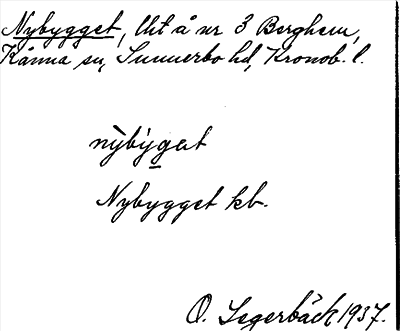 Nybygget, lht å nr 3 Berghem,
Kånna sn, Sunnerbo hd, Kronob. l.
nỳbýgat
Nybygget kb.
O. Segerbäck 1937.